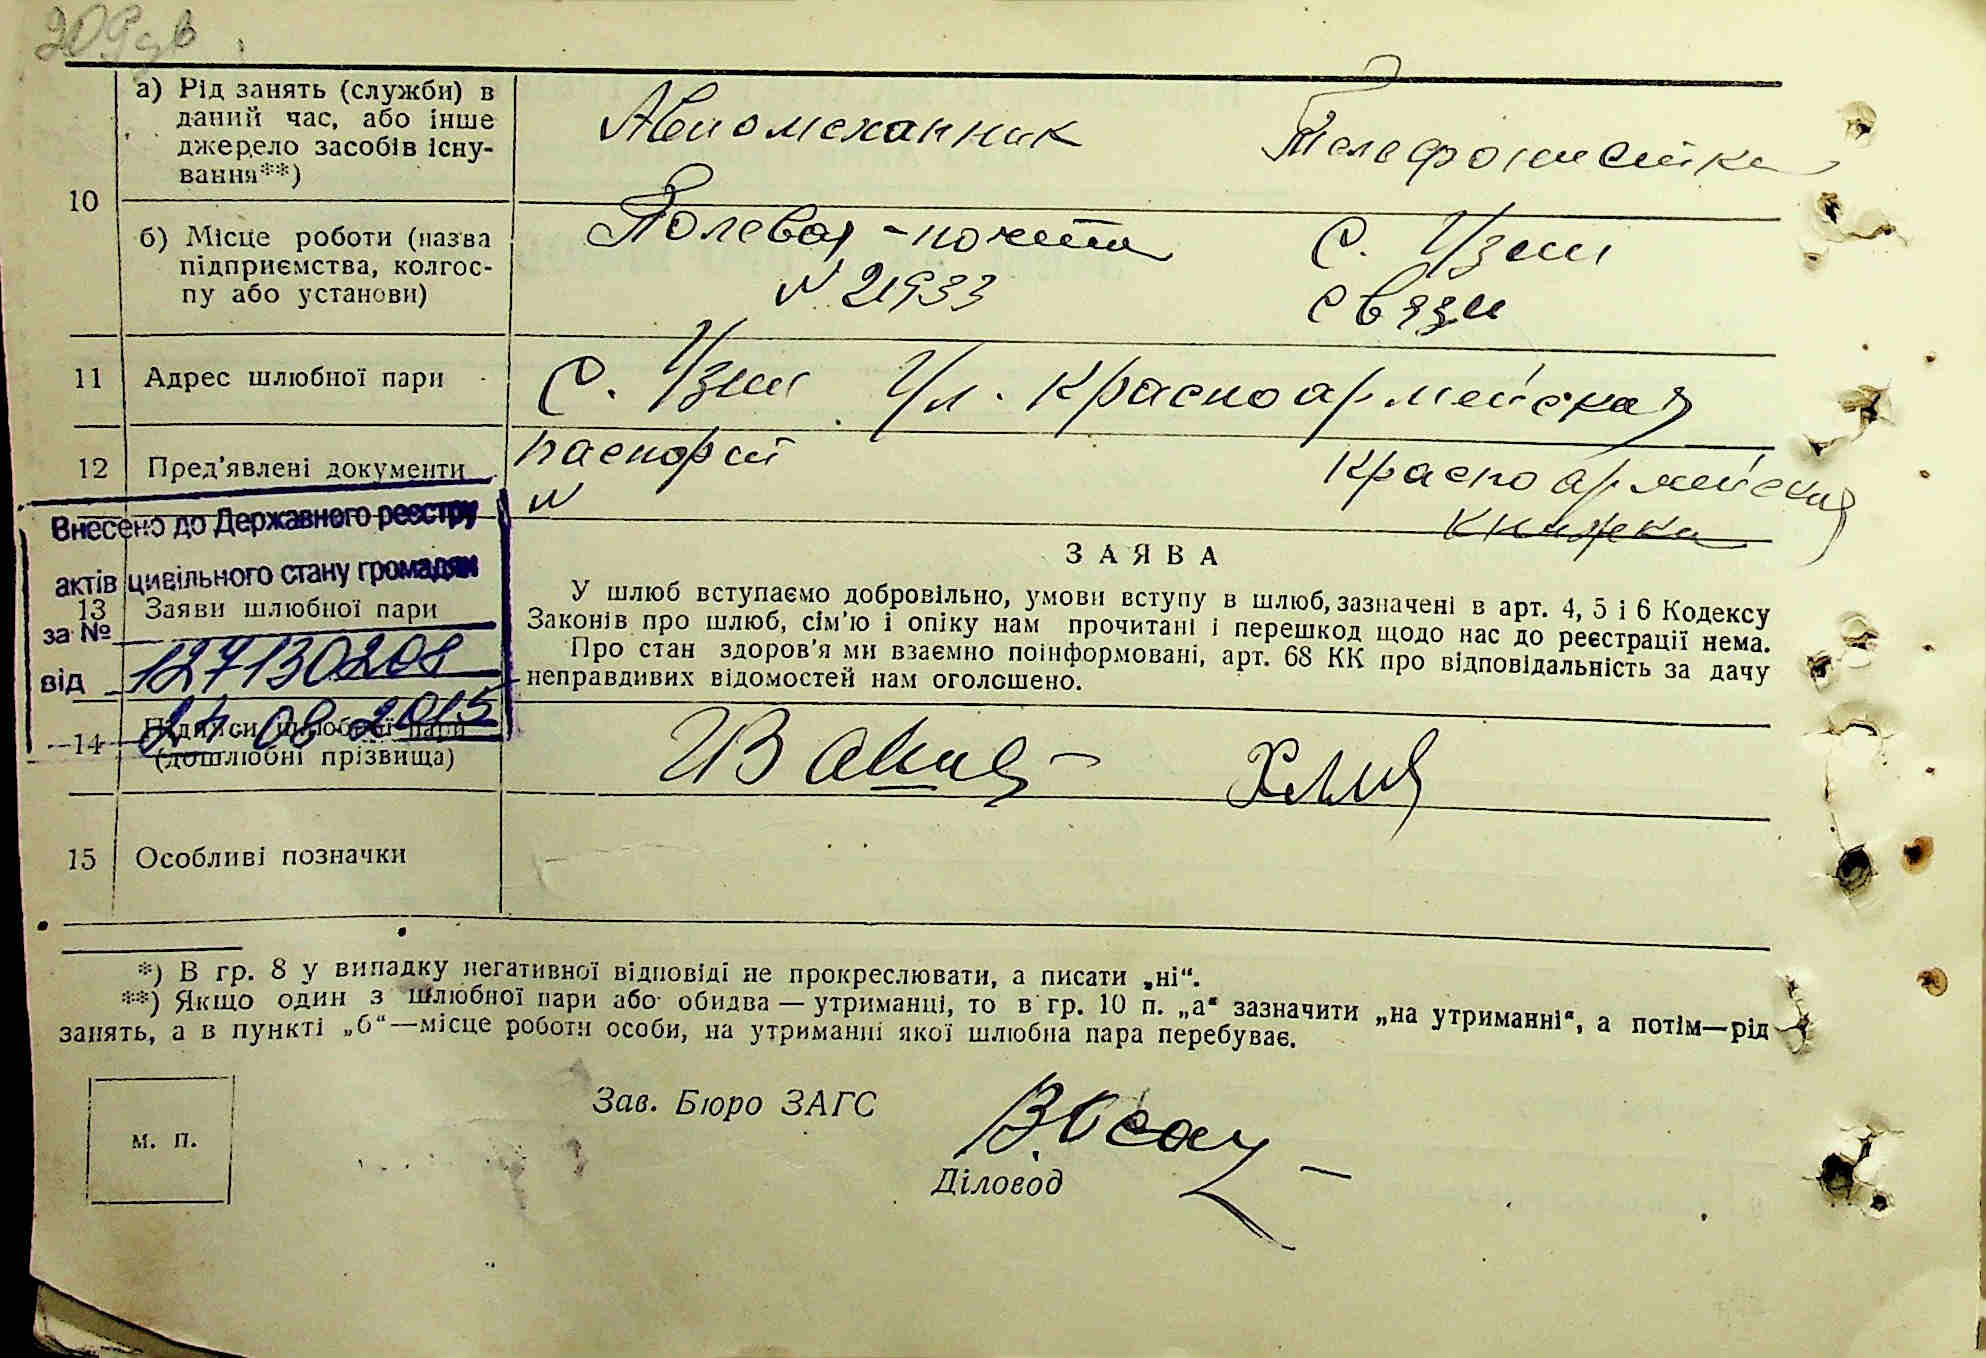 209 зв
10
а) Рід занять (служби) в
даний час, або інше
джерело засобів існу-
вання**)
Авиомеханник
Телефонистка
б) Місце роботи (назва
підприємства, колгос-
пу або установи)
Полевая - почта
№ 21933
С. Узин
связи
11
Адрес шлюбної пари
С. Узин Ул. Красноармейская
12
Пред'явлені документи
паспорт
№
Красноармейская
книжка
Внесено до Державного реєстру
актів цивільного стану громадян
за №
127130208
від
24.08.2015
13
Заяви шлюбної пари
ЗАЯВА
У шлюб вступаємо добровільно, умови вступу в шлюб, зазначені в арт. 4, 5 і 6 Кодексу
Законів про шлюб, сім'ю і опіку нам прочитані і перешкод щодо нас до реєстрації нема.
Про стан здоров'я ми взаємно поінформовані, арт. 68 КК про відповідальність за дачу
неправдивих відомостей нам оголошено.
14
Підписи шлюбної пари
(дошлюбні прізвища)
15
Особливі позначки
*) В гр. 8 у випадку негативної відповіді не прокреслювати, а писати „ні“.
**) Якщо один з шлюбної пари або обидва — утриманці, то в гр. 10 п. „а“ зазначити „на утриманні“, а потім—рід
занять, а в пункті „б“—місце роботи особи, на утриманні якої шлюбна пара перебуває.
м. п.
Зав. Бюро ЗАГС
Діловод